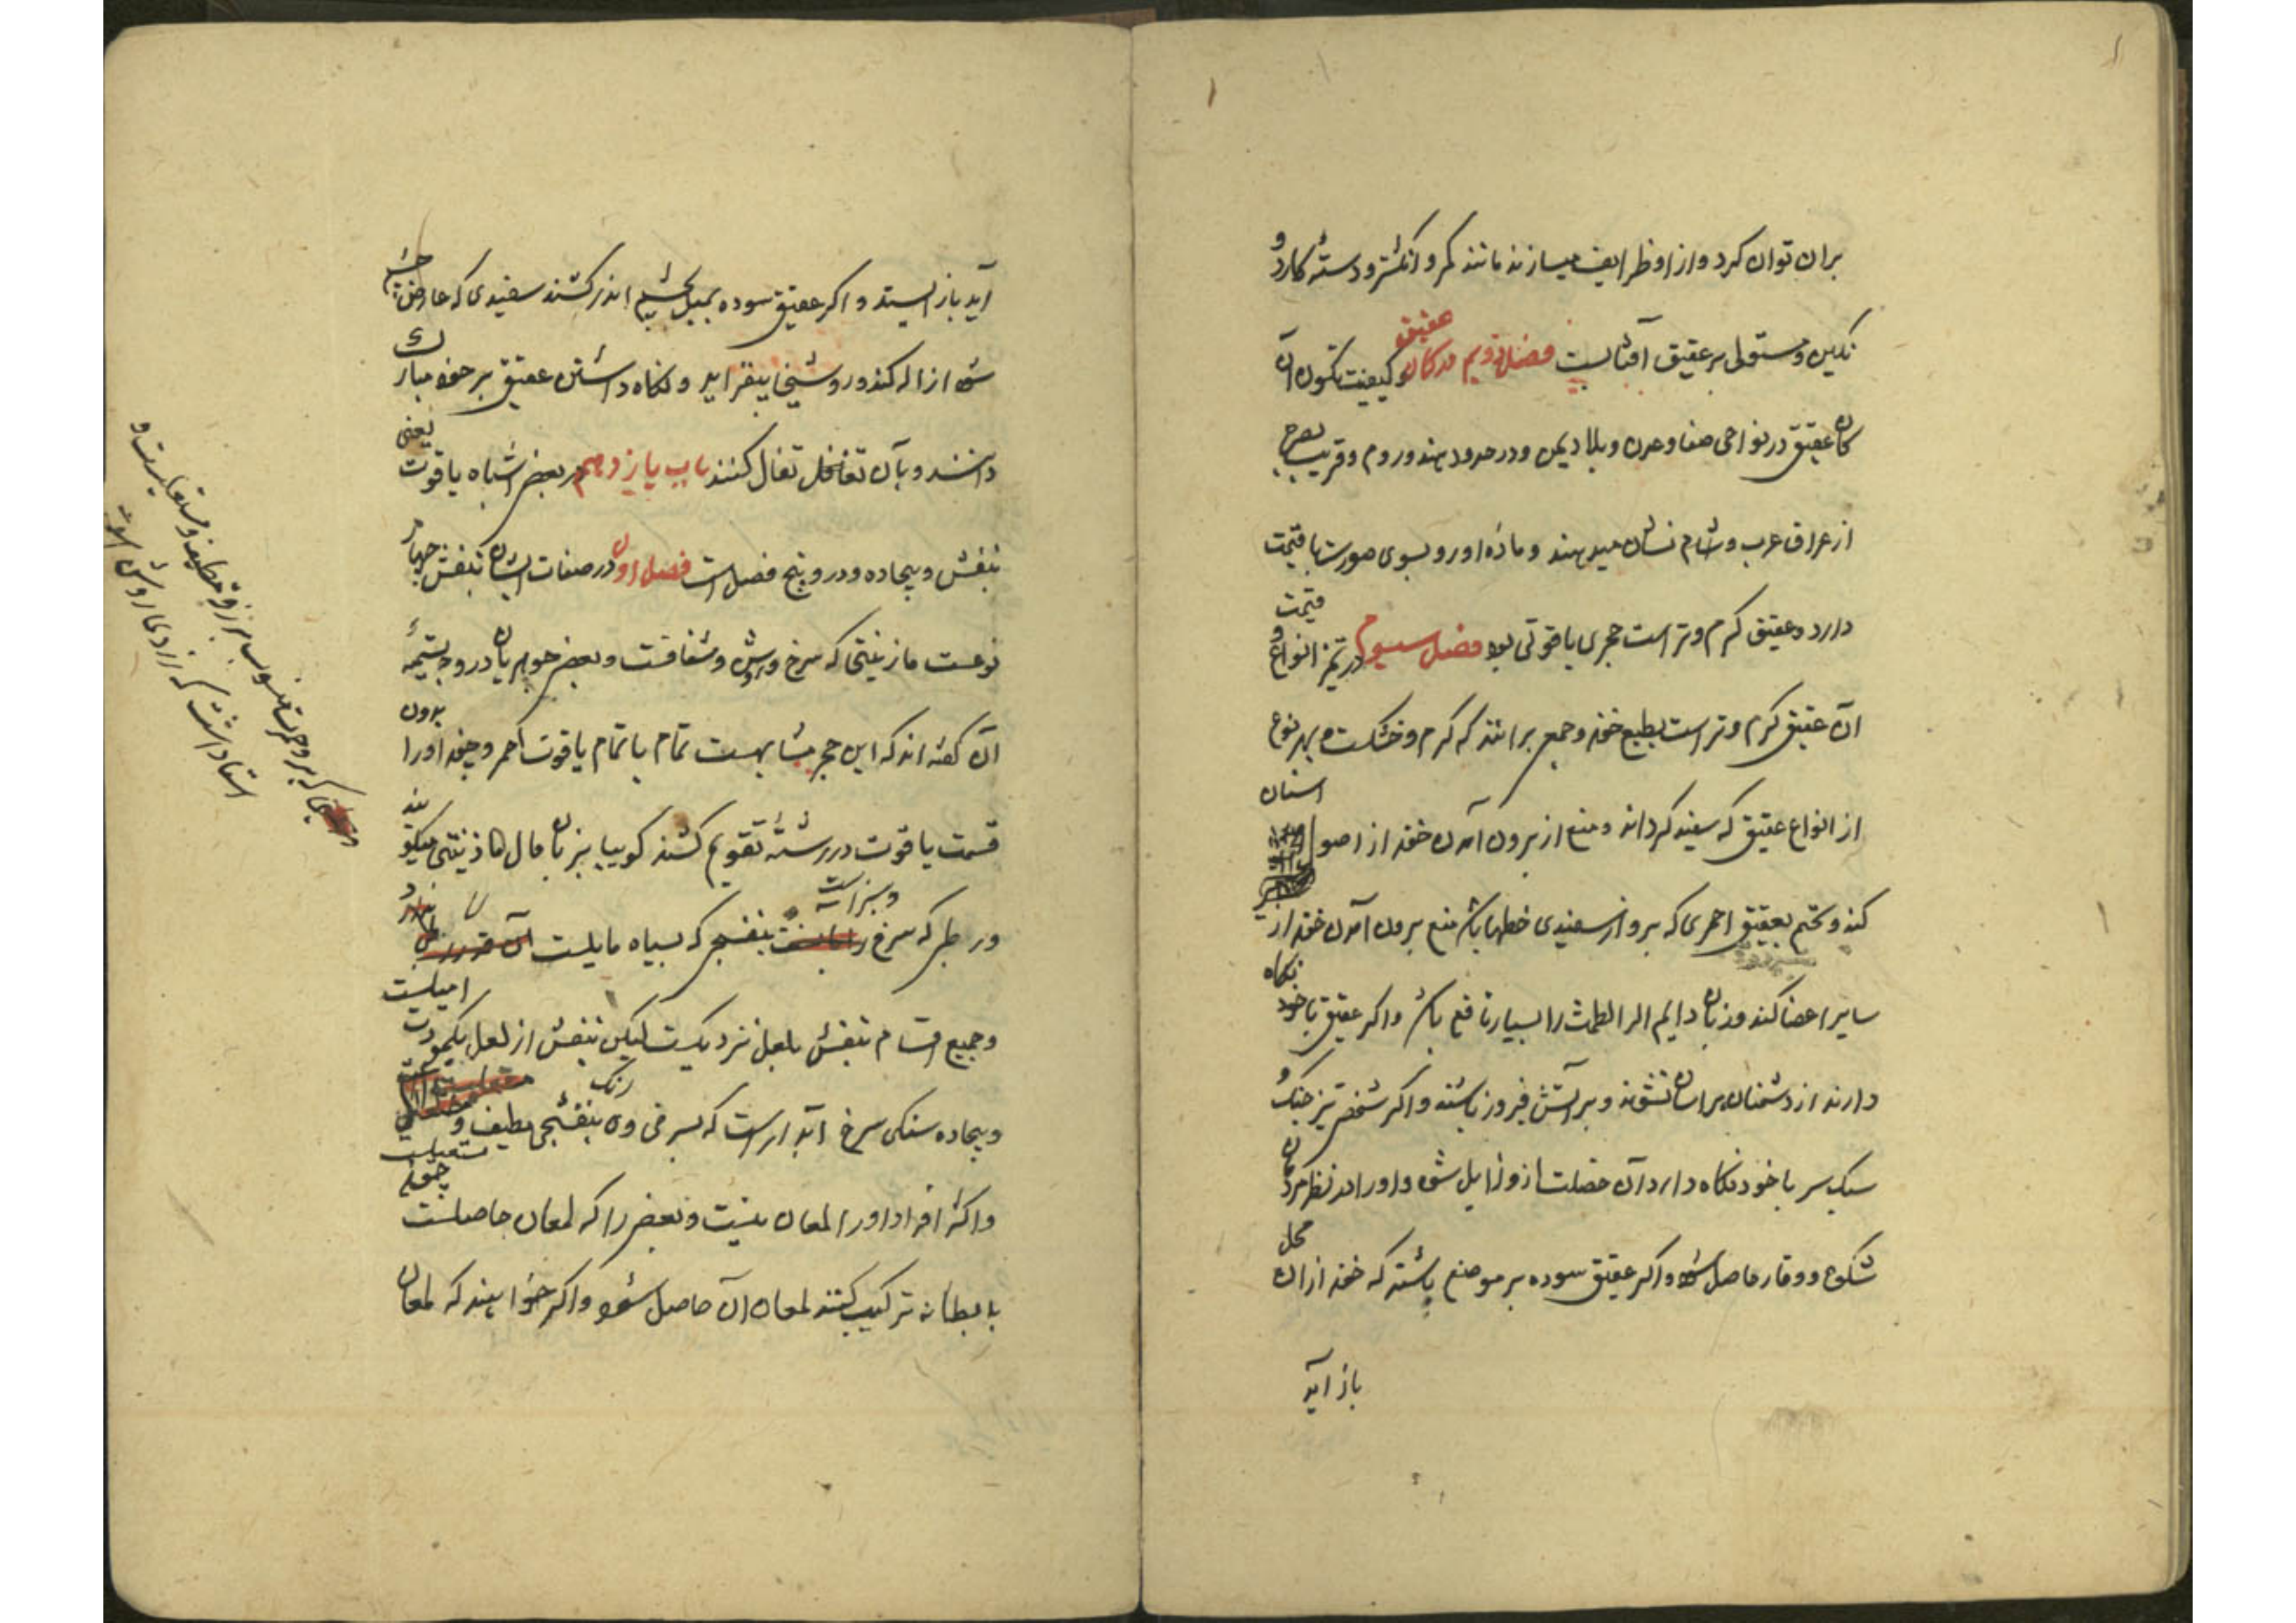 بران توان کرد و از او ظرایف میسازند مانند کمر و انکشتر و دسته کارد و
نکین و مستولی بر عقیق آفتابست فصل دویم در کان عقیق و کیفیت تکون آن
کان عقیق در نواحی صنعا و عدن و بلاد یمن و در حدود هند و روم و قریب بصره
از عراق عرب و شام نشان میدهند و ماده او روبسوی صورت یاقوت
دارد و عقیق کرم و تر است حجری یاقوتی بود فصل سیوم در تمیز انواع و قیمت
آن عقیق کرم و تر است بطبع خود و جمع برانند که کرم و خشکست و بهر نوع
از انواع عقیق که سفید کردانند و منع از برون آمدن خون از اصول اسنان
کند و تختم بعقیق احمری که برو از سفیدی خطها باشد منع برون آمدن خون از
سایر اعضا کند و زنان دایم الطمث را بسیار نافع باشد و اکر عقیق با خود نکاه
دارند از دشمنان هراسان نشوند و بر آتش فیروز باشند و اکر شخص تیز جنک و
سبک سر با خود نکاه دارد آن خصلت ازو زایل شود و او را در نظر مردمان
شکوه و وقار حاصل شود و اکر عقیق سوده بر موضع پاشند که خون از ان محل
باز آید
آید باز ایستد و اکر عقیق سوده بمیل بچشم اندر کشند سفیدی که عارض چشم
شود ازاله کند و روشنی بیفزاید و نکاه داشتن عقیق بر خود مبارک
دانند و بآن تفال کنند باب یازدهم در بعضی اشباه یاقوت یعنی
بنفش و بیجاده و درو پنج فصل است فصل اول در صفات ایشان بنفش چهار
نوعست مازنیتی که سرخ و روشن و شفافست و بعضی جوهریان در وجه تسمیه
آن کفته اند که این حجر مشابهست تمام با تمام یاقوت احمر و چون او را بدون
قسمت یاقوت در رشته تقویم کشند کوییا بزبان حال ماذنیتی میکویند
و رطبی که سرخ و سبز است بنفسجی که بسیاه مایلست
و جمیع اقسام بنفش بلعل نزدیکست لیکن بنفش از لعل بکمودت امیلست
و بیجاده سنکی سرخ آبدار است که بسرخی وی رنک بنفسجی لطیف و مستعلیست
و اکثر افراد او را لمعان نیست و بعضی را که لمعان حاصلست چون
با بطانه ترکیب کنند لمعان آن حاصل شود و اکر خواهند که لمعان